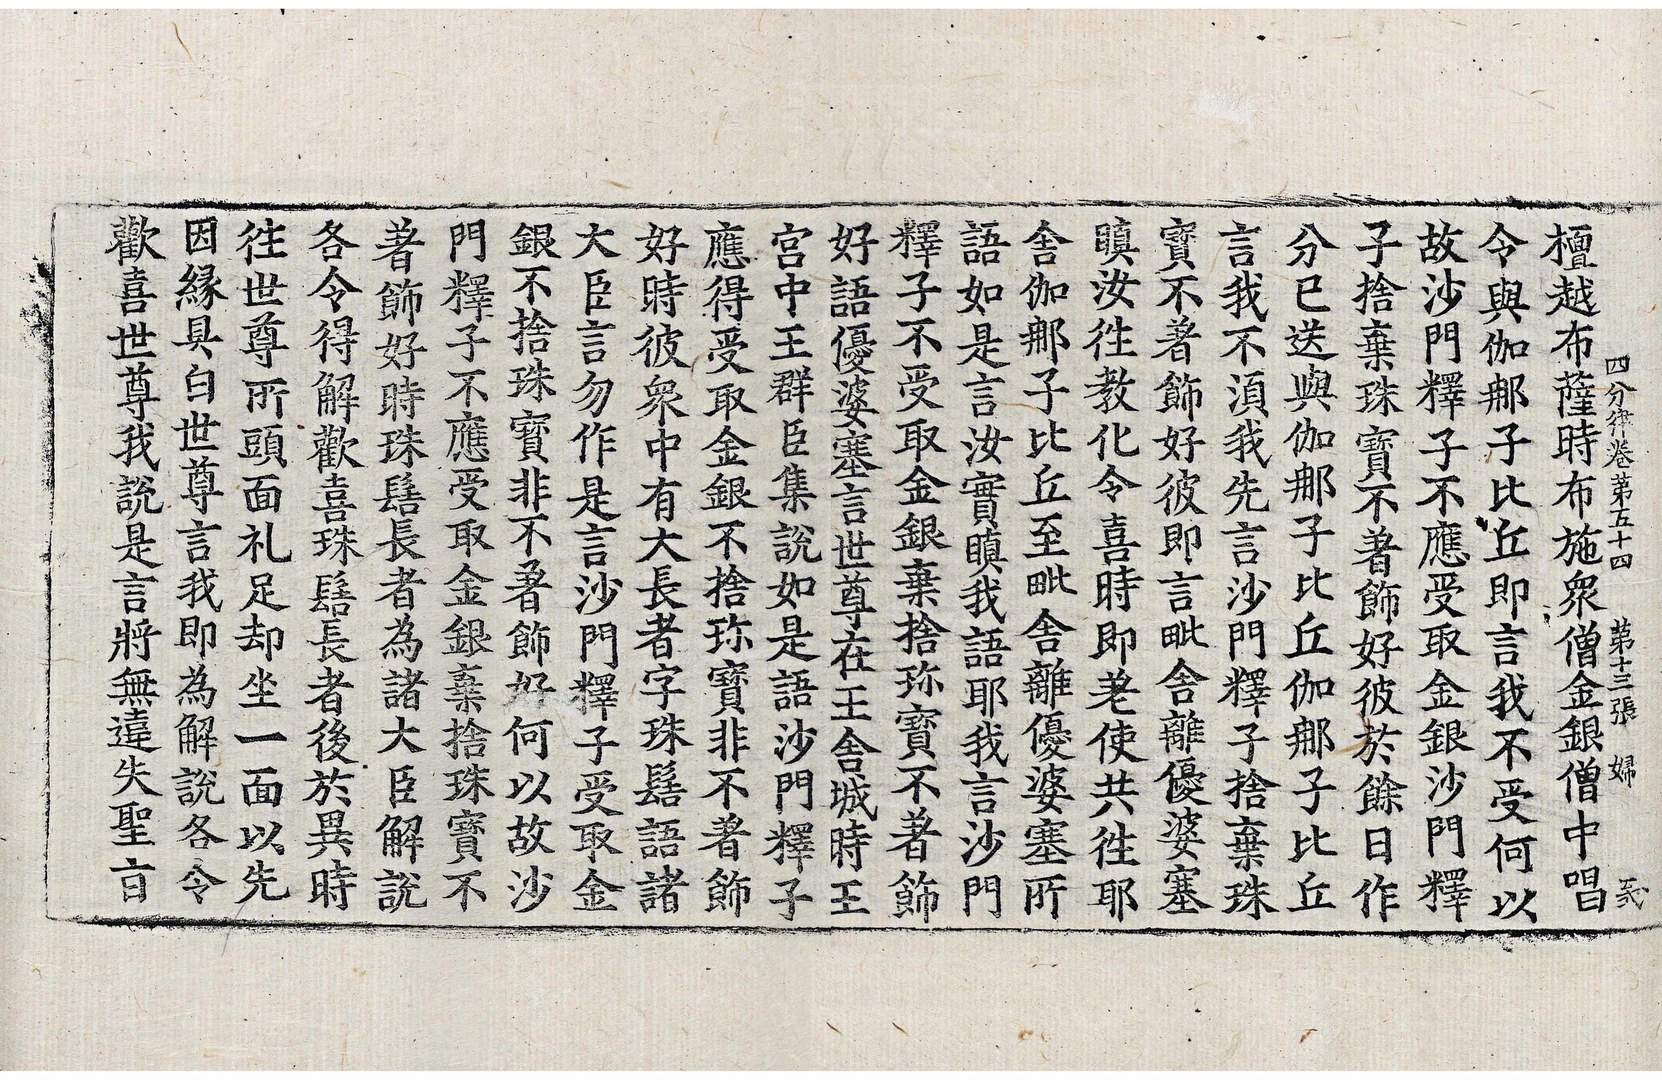 檀越布薩時布施衆僧金銀僧中唱
四分律卷第五十四 第十三張 婦
令與伽那子比丘即言我不受何以
故沙門釋子不應受取金銀沙門釋
子捨棄珠寶不著飾好彼於餘日作
分已送與伽那子比丘伽那子比丘
言我不湏我先言沙門釋子捨棄珠
寶不著飾好彼即言毗舍離優婆塞
瞋汝徃教化令喜時即差使共徃耶
舍伽那子比丘至毗舍離優婆塞所
語如是言汝實瞋我語耶我言沙門
釋子不受取金銀棄捨珎寶不著飾
好語優婆塞言世尊在王舍城時王
宫中王群臣集說如是語沙門釋子
應得受取金銀不捨珎寶非不著飾
好時彼衆中有大長者字珠髻語諸
大臣言勿作是言沙門釋子受取金
銀不捨珠寶非不著飾好何以故沙
門釋子不應受取金銀棄捨珠寶不
著飾好時珠髻長者為諸大臣解說
各令得解歡喜珠髻長者後於異時
徃世尊所頭面礼足却坐一面以先
因縁具白世尊言我即為解說各令
歡喜世尊我說是言將無違失聖言